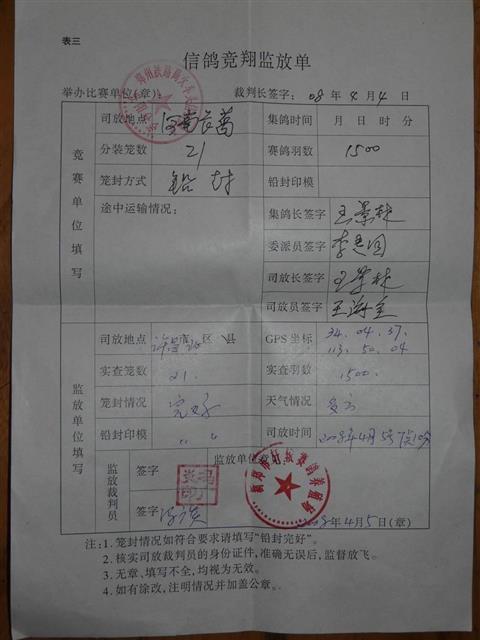 表三
信鸽竞翔监放单
举办比赛单位(章): 裁判长签字: 08年4月4日
竞赛单位填写
司放地点 河南 集鸽时间 月 日 时 分
分装笼数 21 赛鸽羽数 1500
笼封方式 铅封 铅封印模
途中运输情况: 集鸽长签字
委派员签字
司放长签字
司放员签字
监放单位填写
司放地点 区 县 GPS坐标 34.04.37. 113.50.04
实查笼数 21. 实查羽数 1500.
笼封情况 完好 天气情况 多云
铅封印模 〃 〃 司放时间 2008年4月5日7点10分
监放裁判员 签字 监放单位意见:
签字 2008年4月5日(章)
注:1. 笼封情况如符合要求请填写“铅封完好”。
2. 核实司放裁判员的身份证件,准确无误后,监督放飞。
3. 无章、填写不全,均视为无效。
4. 如有涂改,注明情况并加盖公章。